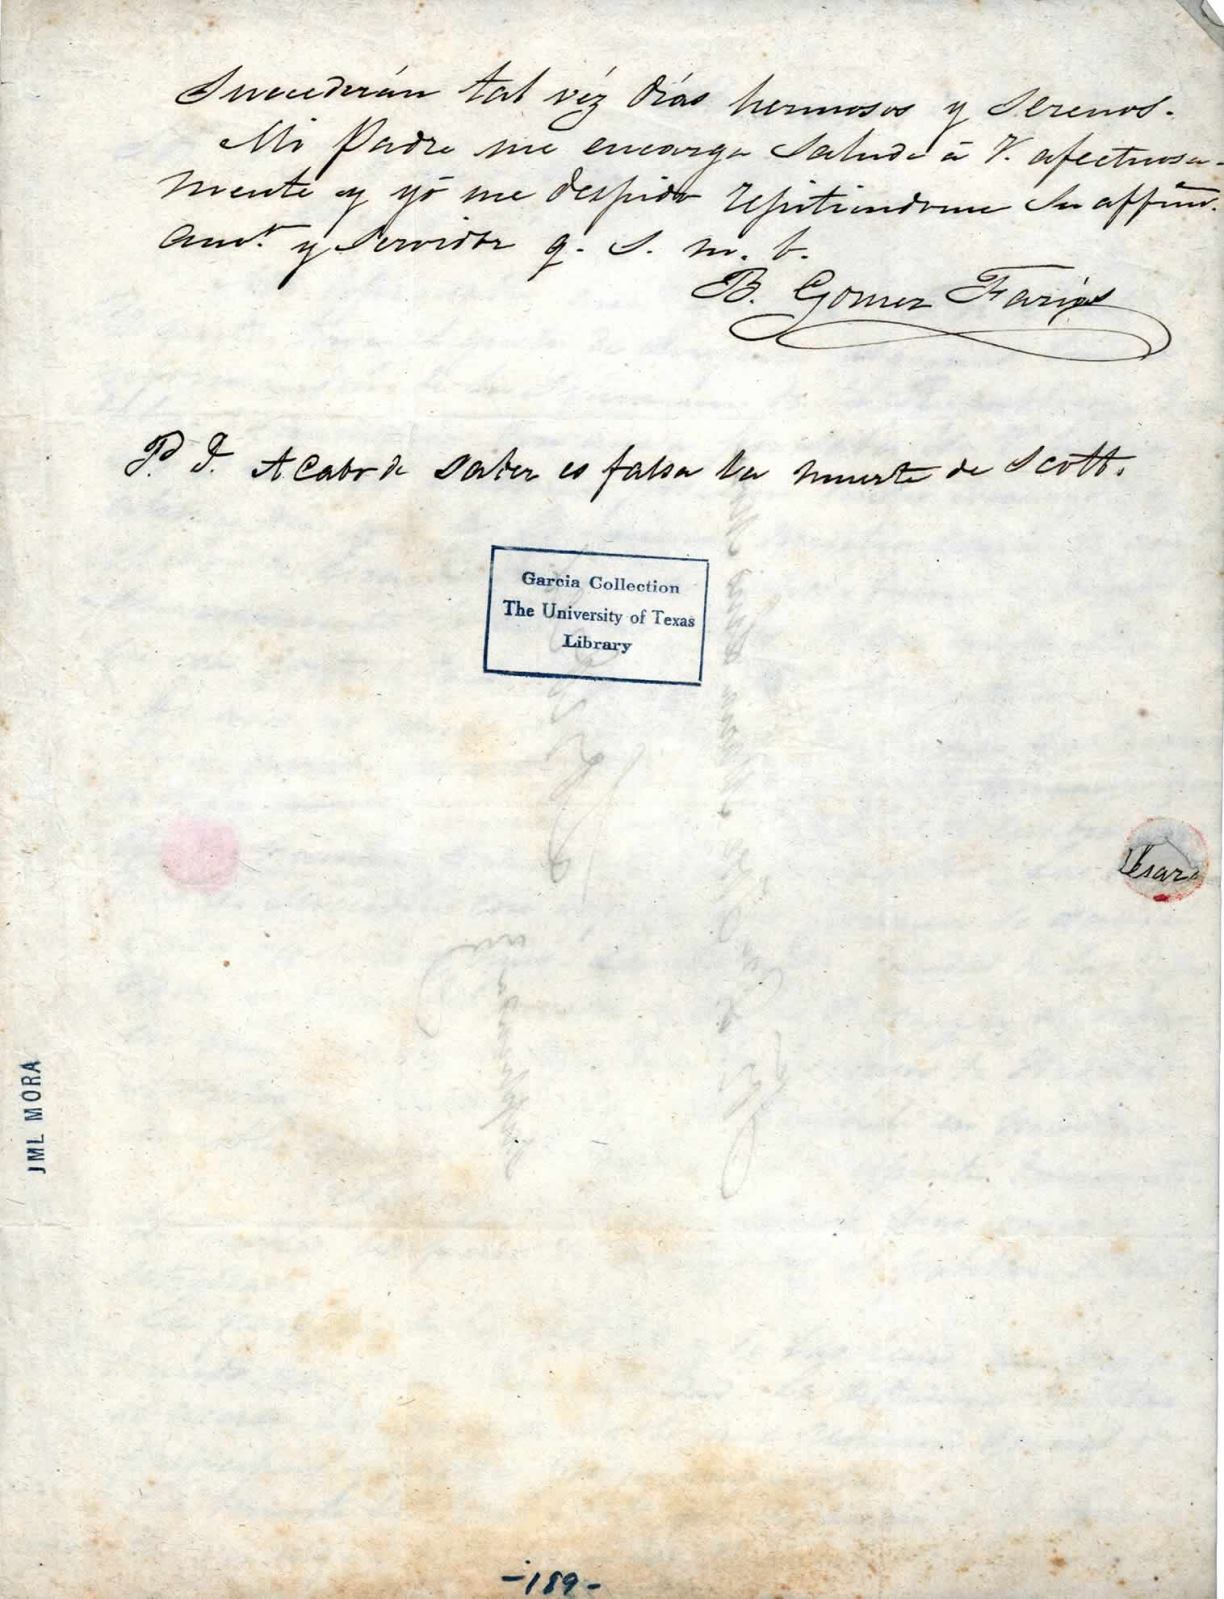 Sucederán tal véz dias hermosos y serenos.
Mi Padre me encarga salude á V. afectuosa-
mente y yó me despido repitiendome su affmo.
amo. y servidor q. S. m. b.
B. Gomez Farias
P. D. Acabo de saber es falsa la muerte de Scott.
Garcia Collection
The University of Texas
Library
JML MORA
-189-